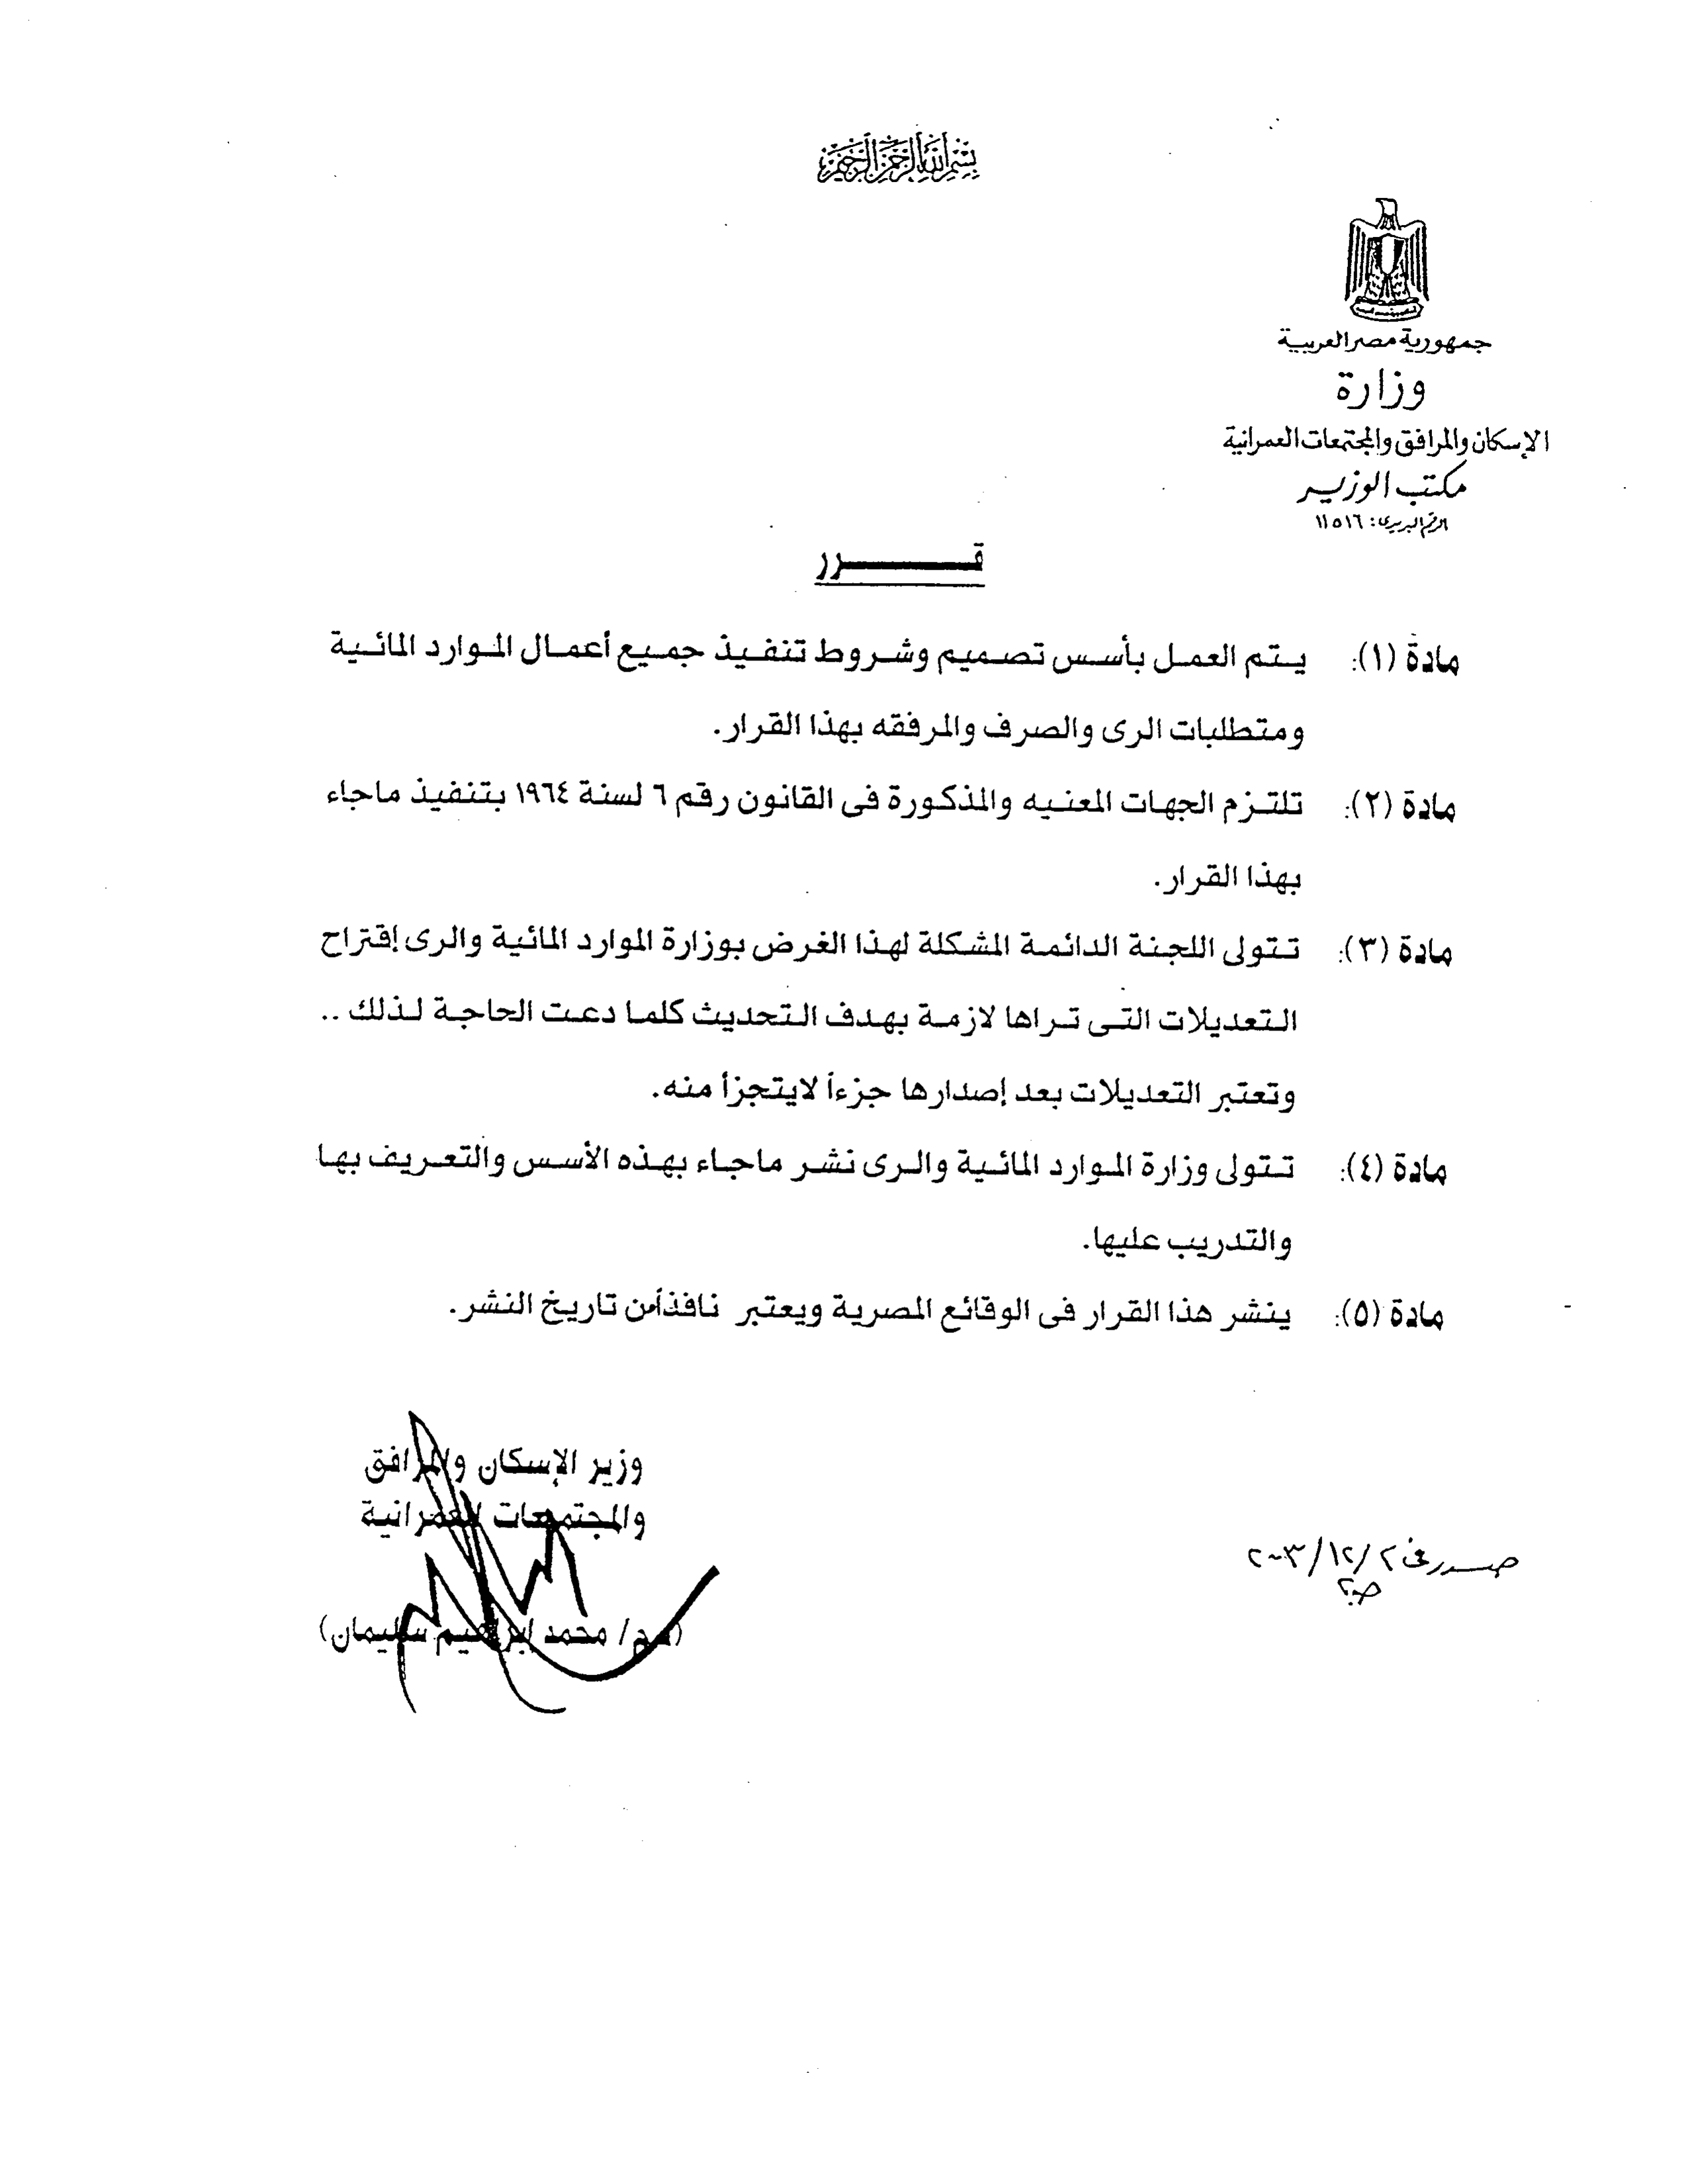 بسم الله الرحمن الرحيم
جمهورية مصر العربية
وزارة
الإسكان والمرافق والمجتمعات العمرانية
مكتب الوزير
الرقم البريدى : ١١٥١٦
قـــــرر
مادة (١): يتم العمل بأسس تصميم وشروط تنفيذ جميع أعمال الموارد المائية
ومتطلبات الرى والصرف والمرفقه بهذا القرار.
مادة (٢): تلتزم الجهات المعنيه والمذكورة فى القانون رقم ٦ لسنة ١٩٦٤ بتنفيذ ماجاء
بهذا القرار.
مادة (٣): تتولى اللجنة الدائمة المشكلة لهذا الغرض بوزارة الموارد المائية والرى إقتراح
التعديلات التى تراها لازمة بهدف التحديث كلما دعت الحاجة لذلك ..
وتعتبر التعديلات بعد إصدارها جزءاً لايتجزأ منه.
مادة (٤): تتولى وزارة الموارد المائية والرى نشر ماجاء بهذه الأسس والتعريف بها
والتدريب عليها.
مادة (٥): ينشر هذا القرار فى الوقائع المصرية ويعتبر نافذاً من تاريخ النشر.
وزير الإسكان والمرافق
والمجتمعات العمرانية
صدر فى ٢ /١٢/ ٢٠٠٣
(أ.د.م/ محمد إبراهيم سليمان)